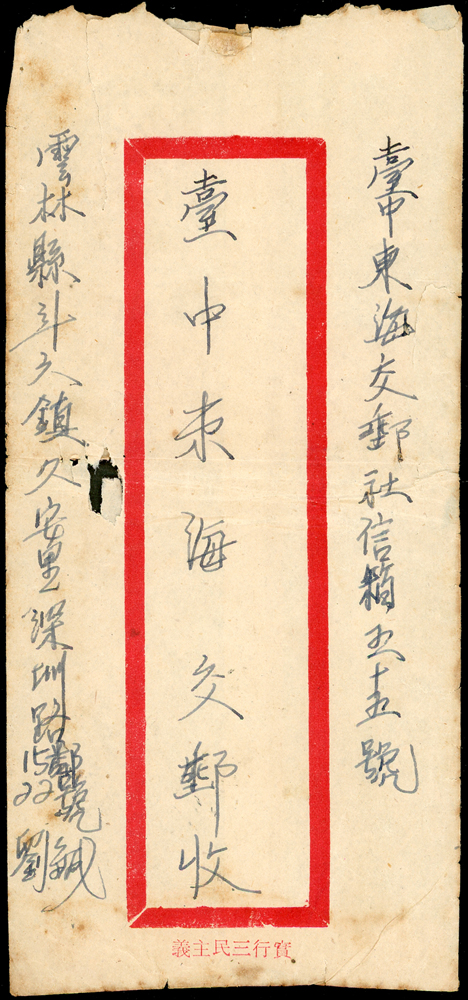 臺中東海交郵社信箱五十五號
臺中東海交郵收
雲林縣斗六鎮久安里深圳路
15鄰
22號
劉
義主民三行實